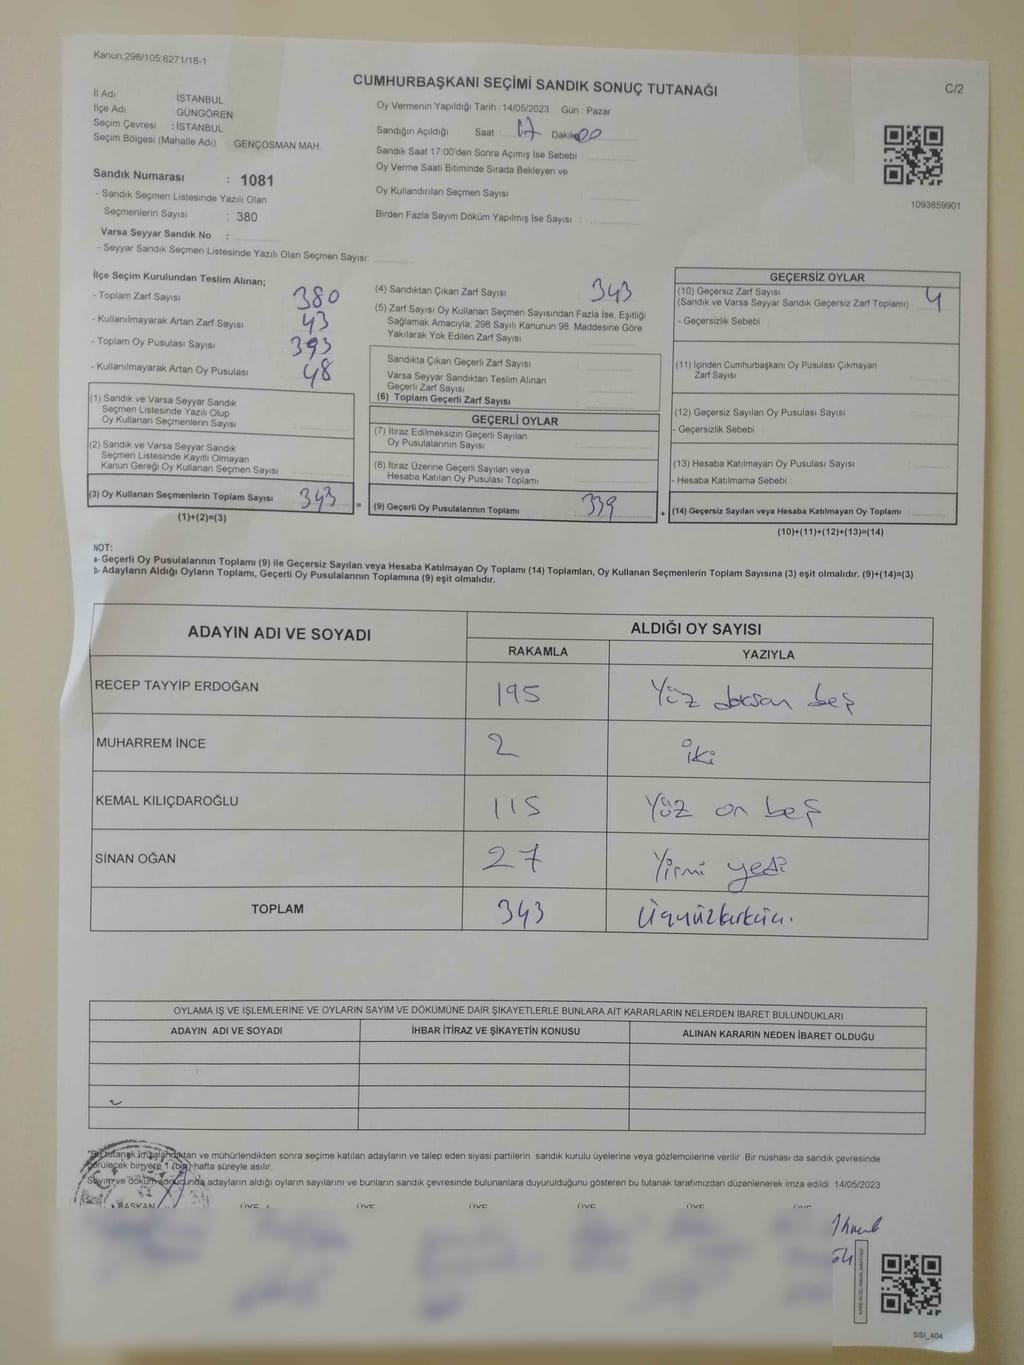 Kanun;298/105;6271/18-1
CUMHURBAŞKANI SEÇİMİ SANDIK SONUÇ TUTANAĞI
C/2
İl Adı İSTANBUL
İlçe Adı GÜNGÖREN
Seçim Çevresi : İSTANBUL
Seçim Bölgesi (Mahalle Adı) GENÇOSMAN MAH.
Sandık Numarası : 1081
- Sandık Seçmen Listesinde Yazılı Olan
Seçmenlerin Sayısı : 380
Varsa Seyyar Sandık No :
- Seyyar Sandık Seçmen Listesinde Yazılı Olan Seçmen Sayısı:
Oy Vermenin Yapıldığı Tarih :14/05/2023 Gün : Pazar
Sandığın Açıldığı Saat 17 Dakika 00
Sandık Saat 17:00'den Sonra Açımış İse Sebebi
Oy Verme Saati Bitiminde Sırada Bekleyen ve
Oy Kullandırılan Seçmen Sayısı
Birden Fazla Sayım Döküm Yapılmış İse Sayısı :
1093859901
İlçe Seçim Kurulundan Teslim Alınan;
- Toplam Zarf Sayısı 380
- Kullanılmayarak Artan Zarf Sayısı 43
- Toplam Oy Pusulası Sayısı 393
- Kullanılmayarak Artan Oy Pusulası 48
(1) Sandık ve Varsa Seyyar Sandık
Seçmen Listesinde Yazılı Olup
Oy Kullanan Seçmenlerin Sayısı
(2) Sandık ve Varsa Seyyar Sandık
Seçmen Listesinde Kayıtlı Olmayan
Kanun Gereği Oy Kullanan Seçmen Sayısı
(3) Oy Kullanan Seçmenlerin Toplam Sayısı 343
(1)+(2)=(3)
(4) Sandıktan Çıkan Zarf Sayısı 343
(5) Zarf Sayısı Oy Kullanan Seçmen Sayısından Fazla İse, Eşitliği
Sağlamak Amacıyla; 298 Sayılı Kanunun 98. Maddesine Göre
Yakılarak Yok Edilen Zarf Sayısı
Sandıkta Çıkan Geçerli Zarf Sayısı
Varsa Seyyar Sandıktan Teslim Alınan
Geçerli Zarf Sayısı
(6) Toplam Geçerli Zarf Sayısı
GEÇERLİ OYLAR
(7) İtiraz Edilmeksizin Geçerli Sayılan
Oy Pusulalarının Sayısı
(8) İtiraz Üzerine Geçerli Sayılan veya
Hesaba Katılan Oy Pusulası Toplamı
= (9) Geçerli Oy Pusulalarının Toplamı 339
GEÇERSİZ OYLAR
(10) Geçersiz Zarf Sayısı
(Sandık ve Varsa Seyyar Sandık Geçersiz Zarf Toplamı) 4
- Geçersizlik Sebebi
(11) İçinden Cumhurbaşkanı Oy Pusulası Çıkmayan
Zarf Sayısı
(12) Geçersiz Sayılan Oy Pusulası Sayısı
- Geçersizlik Sebebi
(13) Hesaba Katılmayan Oy Pusulası Sayısı
- Hesaba Katılmama Sebebi
+ (14) Geçersiz Sayılan veya Hesaba Katılmayan Oy Toplamı
(10)+(11)+(12)+(13)=(14)
NOT:
a- Geçerli Oy Pusulalarının Toplamı (9) ile Geçersiz Sayılan veya Hesaba Katılmayan Oy Toplamı (14) Toplamları, Oy Kullanan Seçmenlerin Toplam Sayısına (3) eşit olmalıdır. (9)+(14)=(3)
b- Adayların Aldığı Oyların Toplamı, Geçerli Oy Pusulalarının Toplamına (9) eşit olmalıdır.
ADAYIN ADI VE SOYADI
ALDIĞI OY SAYISI
RAKAMLA YAZIYLA
RECEP TAYYİP ERDOĞAN 195 Yüz doksan beş
MUHARREM İNCE 2 iki
KEMAL KILIÇDAROĞLU 115 Yüz on beş
SİNAN OĞAN 27 Yirmi yedi
TOPLAM 343
OYLAMA İŞ VE İŞLEMLERİNE VE OYLARIN SAYIM VE DÖKÜMÜNE DAİR ŞİKAYETLERLE BUNLARA AİT KARARLARIN NELERDEN İBARET BULUNDUKLARI
ADAYIN ADI VE SOYADI İHBAR İTİRAZ VE ŞİKAYETİN KONUSU ALINAN KARARIN NEDEN İBARET OLDUĞU
*Bu tutanak imzalandıktan ve mühürlendikten sonra seçime katılan adayların ve talep eden siyasi partilerin sandık kurulu üyelerine veya gözlemcilerine verilir. Bir nüshası da sandık çevresinde
görülecek bir yere 1 (bir) hafta süreyle asılır.
Sayım ve döküm sonucunda adayların aldığı oyların sayılarını ve bunların sandık çevresinde bulunanlara duyurulduğunu gösteren bu tutanak tarafımızdan düzenlenerek imza edildi. 14/05/2023
BAŞKAN ÜYE ÜYE ÜYE ÜYE ÜYE ÜYE
SSI_404